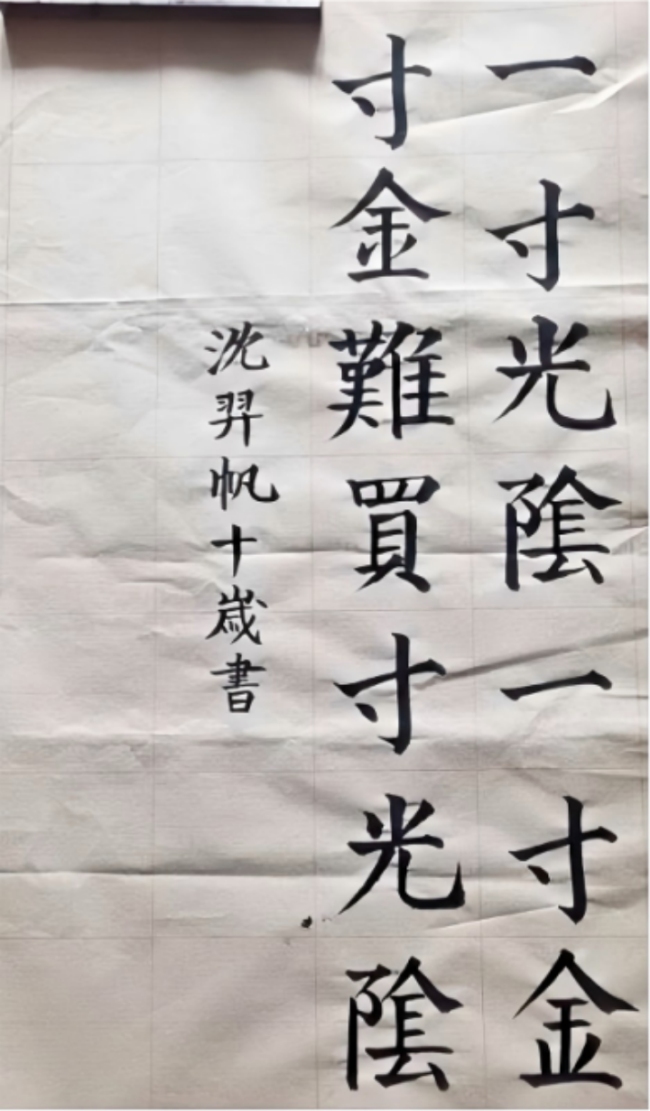 一寸光陰一寸金
寸金難買寸光陰
沈羿帆十歲書